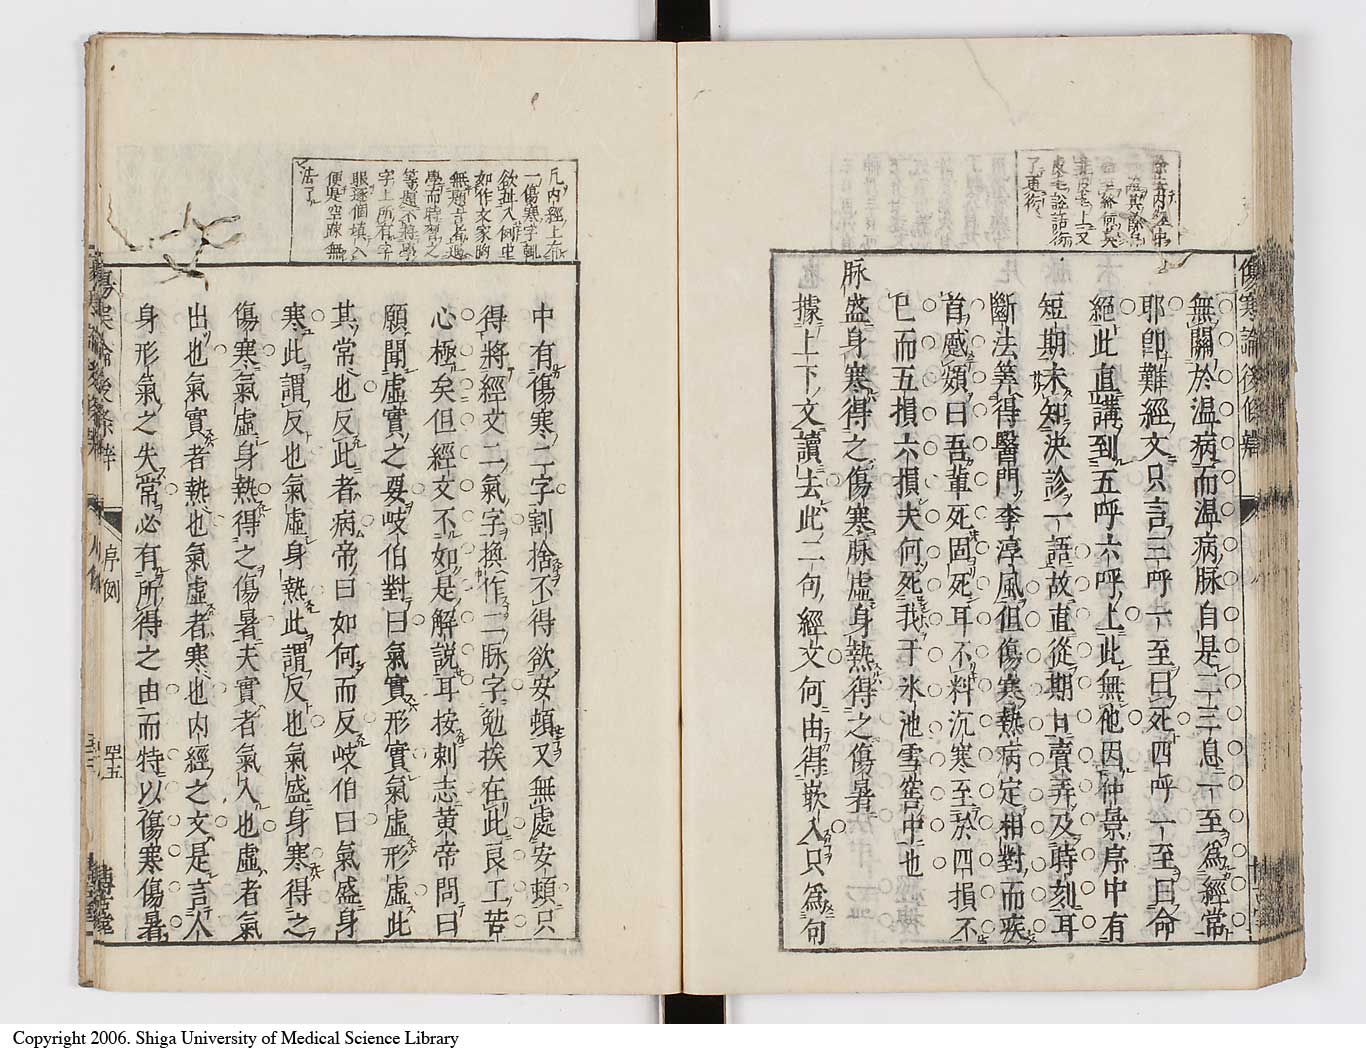 傷寒論後條辨
無關於温病而温病脉自是二三息一至爲經常
耶卽難經文只言三呼一至曰死四呼一至曰命
絕此直講到五呼六呼上此無他因仲景序中有
短期未知決診一語故直從期日賣弄及時刻耳
斷法筭得醫門李淳風但傷寒熱病定相對而疾
首蹙頞曰吾輩死固死耳不料沉寒至於四損不
已而五損六損夫何死我于氷池雪窖中也
脉盛身寒得之傷寒脉虛身熱得之傷暑
據上下文讀去此二句經文何由得嵌入只爲句
凡內經上有
一傷寒字輒
欲扯入例中
如作文家昫
無題旨岳遇
學而時習之
等題不將學
字上所有字
眼逐個塡入
便是空疎無
法了
中有傷寒二字割捨不得欲安頓又無處安頓只
得將經文二氣字換作二脉字勉挨在此良工苦
心極矣但經文不如是解說耳按刺志黃帝問曰
願聞虛實之要岐伯對曰氣實形實氣虛形虛此
其常也反此者病帝曰如何而反岐伯曰氣盛身
寒此謂反也氣虛身熱此謂反也氣盛身寒得之
傷寒氣虛身熱得之傷暑夫實者氣入也虛者氣
出也氣實者熱也氣虛者寒也内經之文是言人
身形氣之失常必有所得之由而特以傷寒傷暑
傷寒論後條辨
序例
四十五
Copyright 2006. Shiga University of Medical Science Library